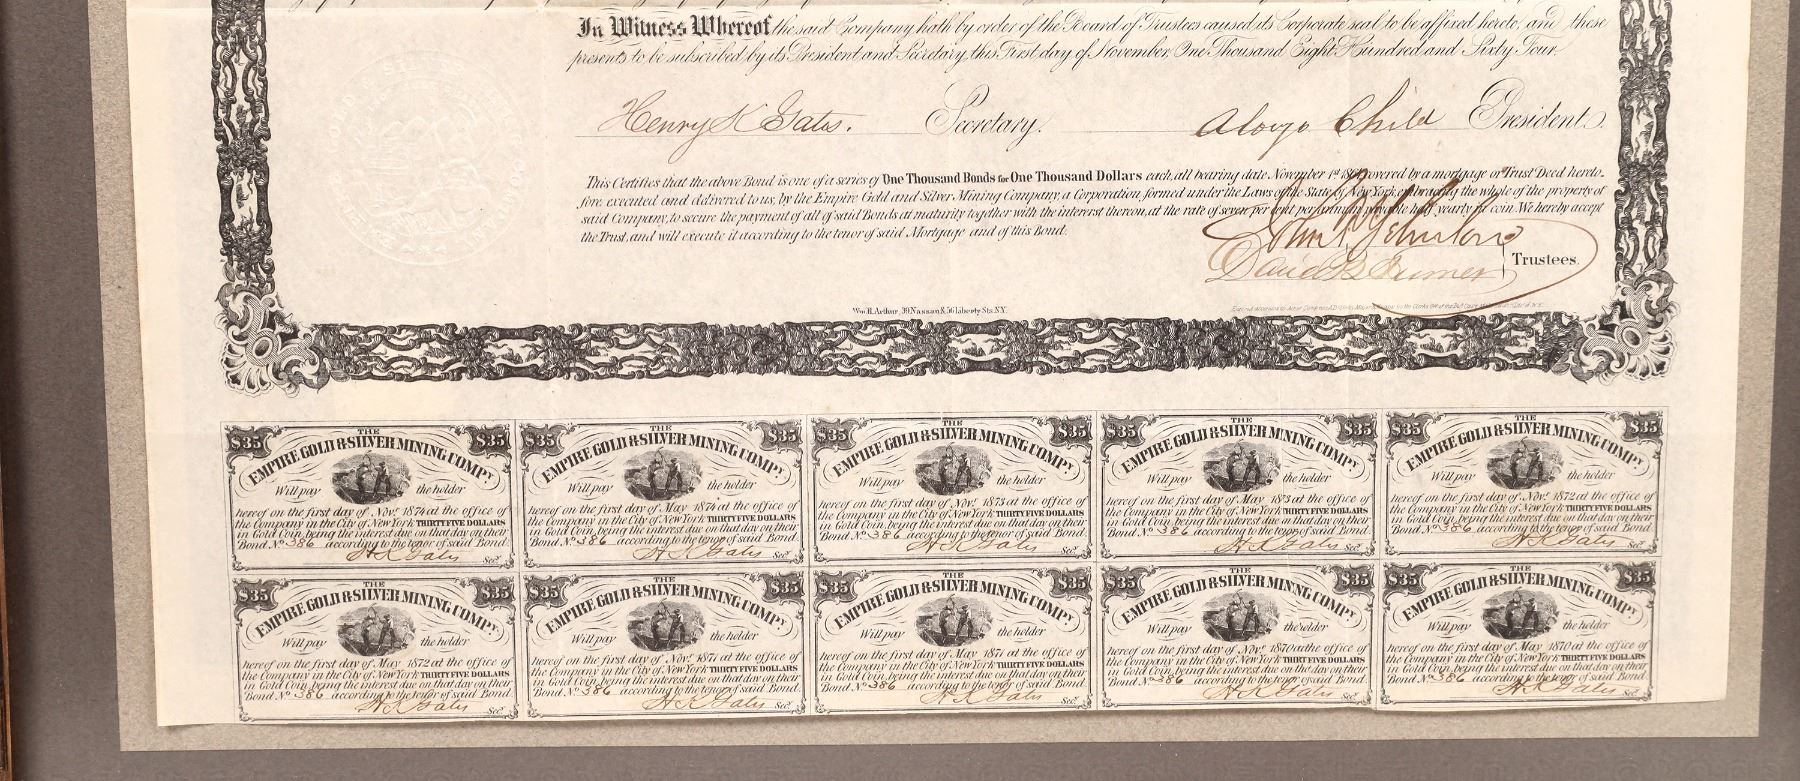 In Witness Whereof the said Company hath by order of the Board of Trustees caused its Corporate seal to be affixed hereto, and these
presents to be subscribed by its President and Secretary, this First day of November, One Thousand Eight Hundred and Sixty Four.
Henry K Gates. Secretary. Alonzo Child President.
This Certifies that the above Bond is one of a series of One Thousand Bonds for One Thousand Dollars each, all bearing date November 1st covered by a mortgage or Trust Deed hereto-
fore executed and delivered to us, by the Empire Gold and Silver Mining Company, a Corporation formed under the Laws of the State of New York, embracing the whole of the property of
said Company, to secure the payment of all of said Bonds at maturity together with the intererst thereon, at the rate of seven per cent per annum payable half yearly in coin. We hereby accept
the Trust, and will execute it according to the tenor of said Mortgage and of this Bond.
Johnston
David B. Turner
Trustees.
Wm. H. Arthur, 39 Nassau & 56 Liberty Sts. N.Y.
$35 THE $35
EMPIRE GOLD & SILVER MINING COMPY.
Will pay the holder
hereof on the first day of Novr. 1874 at the office of
the Company in the City of New York THIRTY FIVE DOLLARS
in Gold Coin, being the interest due on that day on their
Bond No. 386 according to the tenor of said Bond.
H K Gates Secy.
$35 THE $35
EMPIRE GOLD & SILVER MINING COMPY.
Will pay the holder
hereof on the first day of May 1874 at the office of
the Company in the City of New York THIRTY FIVE DOLLARS
in Gold Coin, being the interest due on that day on their
Bond No. 386 according to the tenor of said Bond.
H K Gates Secy.
$35 THE $35
EMPIRE GOLD & SILVER MINING COMPY.
Will pay the holder
hereof on the first day of Novr. 1873 at the office of
the Company in the City of New York THIRTY FIVE DOLLARS
in Gold Coin, being the interest due on that day on their
Bond No. 386 according to the tenor of said Bond.
H K Gates Secy.
$35 THE $35
EMPIRE GOLD & SILVER MINING COMPY.
Will pay the holder
hereof on the first day of May 1873 at the office of
the Company in the City of New York THIRTY FIVE DOLLARS
in Gold Coin, being the interest due on that day on their
Bond No. 386 according to the tenor of said Bond.
H K Gates Secy.
$35 THE $35
EMPIRE GOLD & SILVER MINING COMPY.
Will pay the holder
hereof on the first day of Novr. 1872 at the office of
the Company in the City of New York THIRTY FIVE DOLLARS
in Gold Coin, being the interest due on that day on their
Bond No. 386 according to the tenor of said Bond.
H K Gates Secy.
$35 THE $35
EMPIRE GOLD & SILVER MINING COMPY.
Will pay the holder
hereof on the first day of May 1872 at the office of
the Company in the City of New York THIRTY FIVE DOLLARS
in Gold Coin, being the interest due on that day on their
Bond No. 386 according to the tenor of said Bond.
H K Gates Secy.
$35 THE $35
EMPIRE GOLD & SILVER MINING COMPY.
Will pay the holder
hereof on the first day of Novr. 1871 at the office of
the Company in the City of New York THIRTY FIVE DOLLARS
in Gold Coin, being the interest due on that day on their
Bond No. 386 according to the tenor of said Bond.
H K Gates Secy.
$35 THE $35
EMPIRE GOLD & SILVER MINING COMPY.
Will pay the holder
hereof on the first day of May 1871 at the office of
the Company in the City of New York THIRTY FIVE DOLLARS
in Gold Coin, being the interest due on that day on their
Bond No. 386 according to the tenor of said Bond.
H K Gates Secy.
$35 THE $35
EMPIRE GOLD & SILVER MINING COMPY.
Will pay the holder
hereof on the first day of Novr. 1870 at the office of
the Company in the City of New York THIRTY FIVE DOLLARS
in Gold Coin, being the interest due on that day on their
Bond No. 386 according to the tenor of said Bond.
H K Gates Secy.
$35 THE $35
EMPIRE GOLD & SILVER MINING COMPY.
Will pay the holder
hereof on the first day of May 1870 at the office of
the Company in the City of New York THIRTY FIVE DOLLARS
in Gold Coin, being the interest due on that day on their
Bond No. 386 according to the tenor of said Bond.
H K Gates Secy.